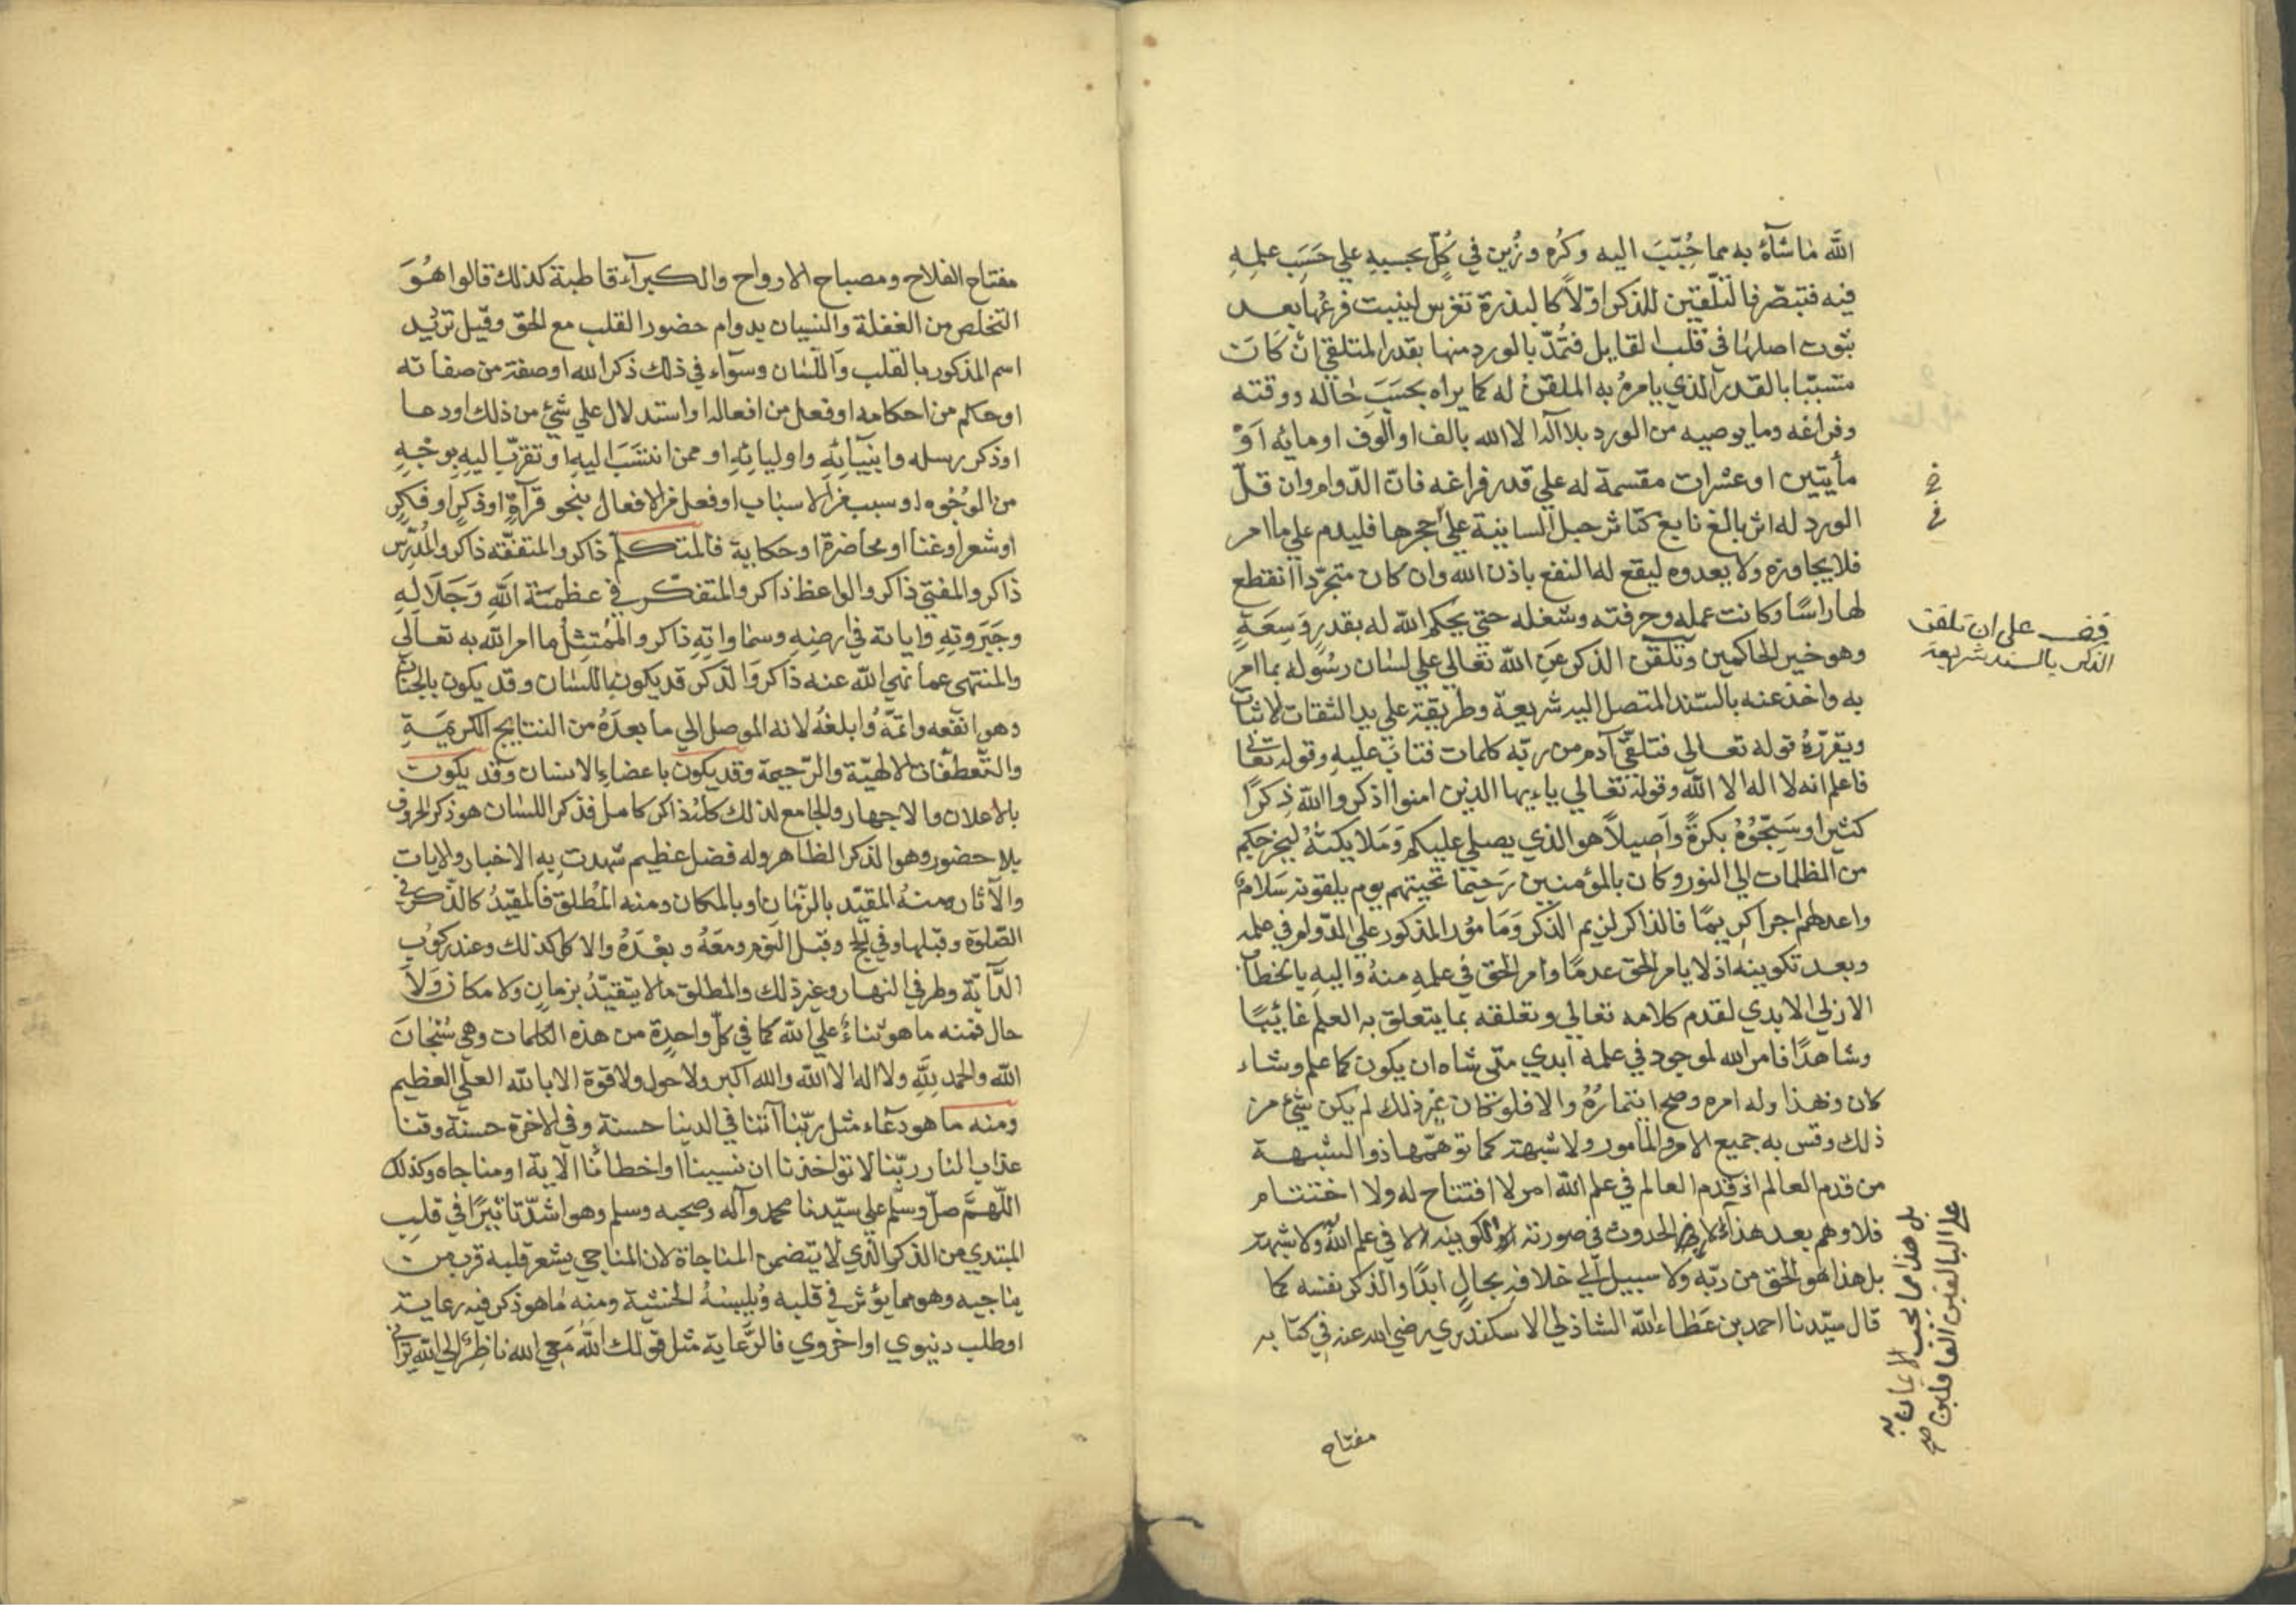 الله ما شآءُ به مما حُبّبَ اليه وكُره وزُين في كُلّ بحسبهِ علي حَسَبِ علمهِ
فيه فتبصّر فالتّلقين للذكر اوّلاً كالبذرة تغرس لينبت فرعُها بعد
ثبوت اصلها في قلب القايل فتُمدّ بالورد منها بقدر المتلقي ان كان
متسببّا بالقدر الذي يامرهُ به الملقن له كما يراه بحسَبَ حاله ووقته
وفراغه وما يوصيه من الورد بلا اله الا الله بالف او الوف او مائه اَوْ
مأيتين او عشرات مقسمة له علي قدر فراغه فانّ الدّوام وان قلّ
الورد له اثر بالغ نابغ كتاثر حبل السانية علي حجرها فليدم علي ما امر
فلا يجاوزه ولا يعدوه ليقع له النفع باذن الله وان كان متجرّدا انقطع
لها راسًا وكانت عمله وحرفته وشغله حتي يحكم الله له بقدرٍ وَسِعَةٍ
وهو خير الحاكمين وتلقّن الذكر عن الله تعالي علي لسان رسُوله بما امر
به واخذ عنه بالسّند المتصل اليه شريعة وطريقة علي يد الثقات لاثبات
ويقرّرهُ قوله تعالي فتلقّي آدم من ربّه كلمات فتابَ عليهِ وقوله تعا
فاعلم انه لا اله الا الله وقوله تعالي ياءيها الذين امنوا اذكروا الله ذِكرًا
كثيرا وسَبّحُوْهُ بكرةً واَصيلاً هو الذي يصلي عليكم وَمَلايكتهُ ليخرجكم
من الظلمات الي النور وكان بالمؤمنين رَحيمًا تحيتهم يوم يلقونه سَلامٌ
واعد لهم اجرا كريمًا فالذاكر لزيم الذكر وَمَامؤر المذكور علي الدّوام في علمه
وبعد تكوينه اذ لا يامر الحق عدمًا وامر الحق في علمهِ منهُ واليهِ بالخطاب
الازلي الابدي لقدم كلامه تعالي وتعلقه بما يتعلق به العلم غائبًا
وشاهدًا فامر الله لموجود في علمه ابدي متي شاه ان يكون كما علم وشاء
كان ونفذا وله امره وصح ائتمارُهُ والا فلو كان غير ذلك لم يكن شيئ من
ذلك وقس به جميع الامر والمأمور ولا شبهة كما توهّمها ذوا الشبهة
من قدم العالم اذ قدم العالم في علم الله امر لا افتتاح له ولا اختتام
فلا وهم بعد هذا الحدوث في صورته الكونية لا في علم الله ولا شبهة
بل هذا لهو الحق من ربّه ولا سبيل الي خلافه بحالٍ ابدًا والذكر نفسه كما
قال سيّدنا احمد بن عَطاء الله الشاذلي الاسكندري رضي الله عنه في كتابه
مفتاح
قف علي ان تلقن
الذكر بالسند شريعة
بل هذا مما يجب الايمان به
علي البالغين العاقلين صح
مفتاح الفلاح ومصباح الارواح والكبرآء قاطبة كذلك قالوا هُوَ
التخلص من الغفلة والنسيان بدوام حضور القلب مع الحق وقيل ترديد
اسم المذكور بالقلب واللّسان وسوآء في ذلك ذكر الله او صفة من صفاته
او حكم من احكامه او فعل من افعاله او استدلال علي شيئ من ذلك او دعا
او ذكر رسله وانبيآئِهِ واوليائِهِ او ممن انتسَبَ اليهِ او تقرّب اليهِ بوجْهٍ
من الوُجُوه او سبب من الاسباب او فعل من الافعال بنحو قرآءةٍ او ذكرٍ او فكرٍ
او شعر او غنا او محاضرة او حكاية فالمتكلم ذاكر والمتفقّه ذاكر والمُدرّس
ذاكر والمفتي ذاكر والواعظ ذاكر والمتفكّر في عظمَة اللهِ وَجَلالِهِ
وجَبَروتِهِ واياته في ارضِهِ وسماواتِهِ ذاكر والمُمتثِلُ ما امر الله به تعالي
والمنتهي عما نهي الله عنه ذاكر والذكر قد يكون باللسان وقد يكون بالجنان
وهو انفعه واتمّهُ وابلغهُ لانه الموصل الي ما بعدَهُ من النتايج الكريمَةِ
والتّعطفّات الالهيّة والرّحيمة وقد يكون باعضاءِ الانسان وقد يكون
بالاعلان والاجهار والجامع لذلك كله ذاكر كامل فذكر اللسان هو ذكر الحروف
بلا حضور وهو الذكر الظاهر وله فضل عظيم شهدت بِهِ الاخبار والايات
والآثار ومنهُ المقيّد بالزّمان او بالمكان ومنه المُطلق فالمقيّدُ كالذّكر في
الصّلوة وقبلها وفي الحج وقبل النوم ومعَهُ وبعْدَهُ والاكل كذلك وعند ركوب
الدَّآبّة وطرفي النهار وغير ذلك والمطلق ما لا يتقيّدُ بزمانٍ ولا مكانٍ وَلَا
حال فمنه ما هو ثناءٌ علي الله كما في كلّ واحدةٍ من هذه الكلمات وهي سُبْحَانَ
الله والحمد لِلَّهِ ولا اله الا الله والله اكبر ولا حول ولا قوة الا بالله العلّي العظيم
ومنه ما هو دعآء مثل ربّنا آتنا في الدينا حسنة وفي الاخرة حسنة وقنا
عذاب النار ربّنا لا تؤاخذنا ان نسيبنا او اخطائنا الآية او مناجاه وكذلك
اللّهمّ صلّ وسلّم علي سيّدنا محمد وآله وصحبه وسلم وهو اشدّ تاثيرًا في قلب
المبتدي من الذكر الذي لا يتضمن المناجاة لان المناجي يشعر قلبه قرب من
يناجيه وهو مما يؤثر في قلبه ويُلبسهُ الخشية ومِنه مُا هو ذكر فيه رعاية
او طلب دنيوي او اخروي فالرّعاية مثل قولك الله مَعي الله ناظِرٌ الي الله يراني